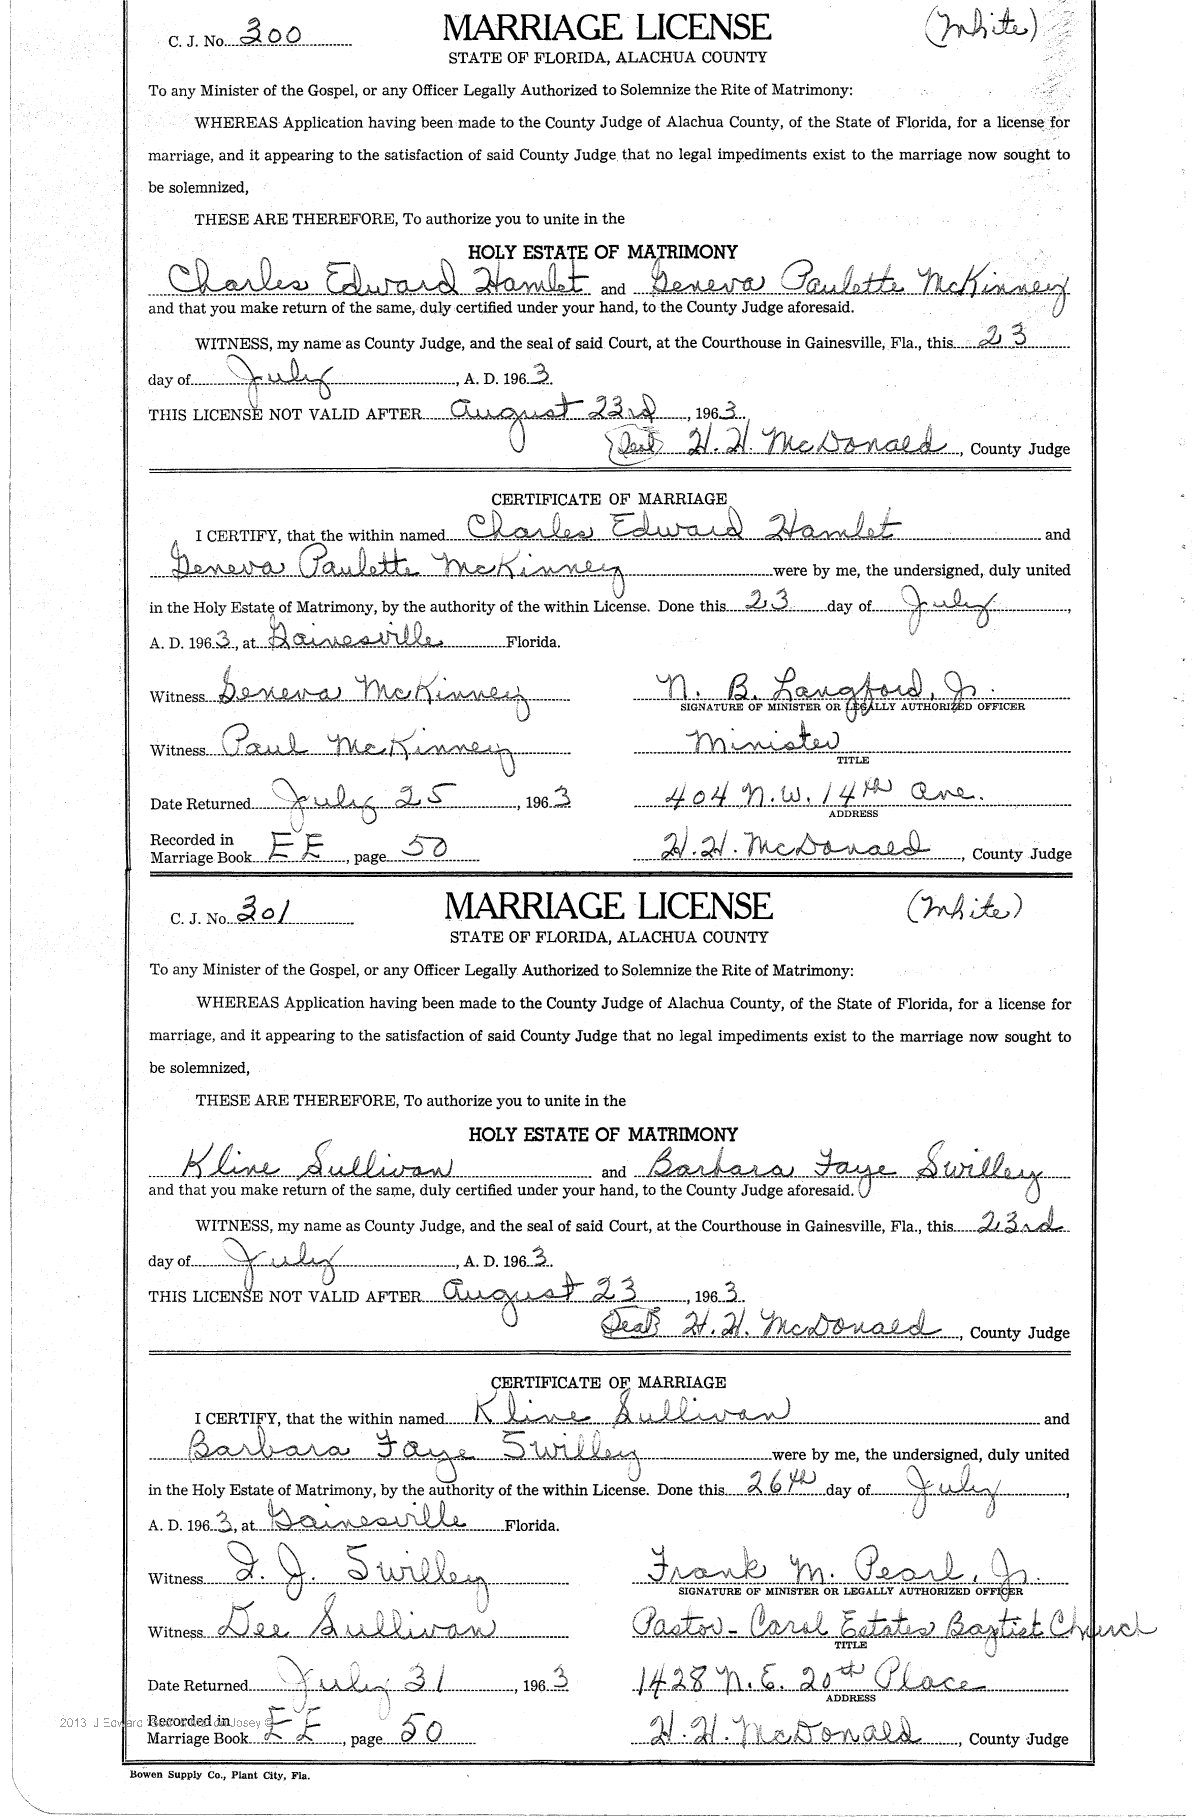 C. J. No. 300 MARRIAGE LICENSE (White)
STATE OF FLORIDA, ALACHUA COUNTY
To any Minister of the Gospel, or any Officer Legally Authorized to Solemnize the Rite of Matrimony:
WHEREAS Application having been made to the County Judge of Alachua County, of the State of Florida, for a license for
marriage, and it appearing to the satisfaction of said County Judge that no legal impediments exist to the marriage now sought to
be solemnized,
THESE ARE THEREFORE, To authorize you to unite in the
HOLY ESTATE OF MATRIMONY
Charles Edward Hamlet and Geneva Paulette McKinney
and that you make return of the same, duly certified under your hand, to the County Judge aforesaid.
WITNESS, my name as County Judge, and the seal of said Court, at the Courthouse in Gainesville, Fla., this 23
day of July, A. D. 1963.
THIS LICENSE NOT VALID AFTER August 23rd, 1963.
Seal H. H. McDonald, County Judge
CERTIFICATE OF MARRIAGE
I CERTIFY, that the within named Charles Edward Hamlet and
Geneva Paulette McKinney were by me, the undersigned, duly united
in the Holy Estate of Matrimony, by the authority of the within License. Done this 23 day of July,
A. D. 1963, at Gainesville Florida.
Witness Geneva McKinney N. B. Langford, Jr.
SIGNATURE OF MINISTER OR LEGALLY AUTHORIZED OFFICER
Witness Paul McKinney Minister
TITLE
Date Returned July 25, 1963 404 N.W. 14th Ave.
ADDRESS
Recorded in
Marriage Book EE, page 50 H. H. McDonald, County Judge
C. J. No. 301 MARRIAGE LICENSE (White)
STATE OF FLORIDA, ALACHUA COUNTY
To any Minister of the Gospel, or any Officer Legally Authorized to Solemnize the Rite of Matrimony:
WHEREAS Application having been made to the County Judge of Alachua County, of the State of Florida, for a license for
marriage, and it appearing to the satisfaction of said County Judge that no legal impediments exist to the marriage now sought to
be solemnized,
THESE ARE THEREFORE, To authorize you to unite in the
HOLY ESTATE OF MATRIMONY
Kline Sullivan and Barbara Faye Swilley
and that you make return of the same, duly certified under your hand, to the County Judge aforesaid.
WITNESS, my name as County Judge, and the seal of said Court, at the Courthouse in Gainesville, Fla., this 23rd
day of July, A. D. 1963.
THIS LICENSE NOT VALID AFTER August 23, 1963.
Seal H. H. McDonald, County Judge
CERTIFICATE OF MARRIAGE
I CERTIFY, that the within named Kline Sullivan and
Barbara Faye Swilley were by me, the undersigned, duly united
in the Holy Estate of Matrimony, by the authority of the within License. Done this 26th day of July,
A. D. 1963, at Gainesville Florida.
Witness I. J. Swilley Frank M. Pearl, Jr.
SIGNATURE OF MINISTER OR LEGALLY AUTHORIZED OFFICER
Witness Dee Sullivan Pastor - Carol Estates Baptist Church
TITLE
Date Returned July 31, 1963 1428 N. E. 20th Place
ADDRESS
2013 J Edward Josey ©
Recorded in
Marriage Book EE, page 50 H. H. McDonald, County Judge
Bowen Supply Co., Plant City, Fla.